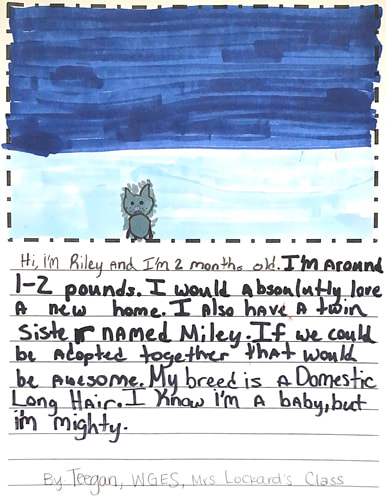 Hi, i'm Riley and I'm 2 months old. I'm around
1-2 pounds. I would absoulutly love
a new home. I also have a twin
sister named Miley. If we could
be adopted together that would
be awesome. My breed is a Domestic
Long Hair. I know i'm a baby, but
i'm mighty.
By: Teegan, WGES, Mrs Lockard's Class